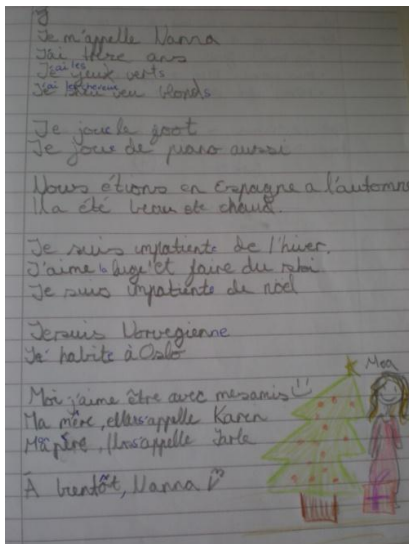 Je m'appelle Nanna
J'ai treze ans
J'ai les yeux verts
J'ai les cheveux blonds
Je joue le foot
Je joue de piano aussi
Nous étions en Espagne a l'automne
Il a été beau et chaud.
Je suis impatiente de l'hiver.
J'aime la luge et faire du ski
Je suis impatiente de noël
Je suis Norvegienne
J'habite à Oslo
Moi j'aime être avec mes amis
Ma mère, elle s'appelle Karen
Mon père, il s'appelle Jarle
À bientôt, Nanna
Moa